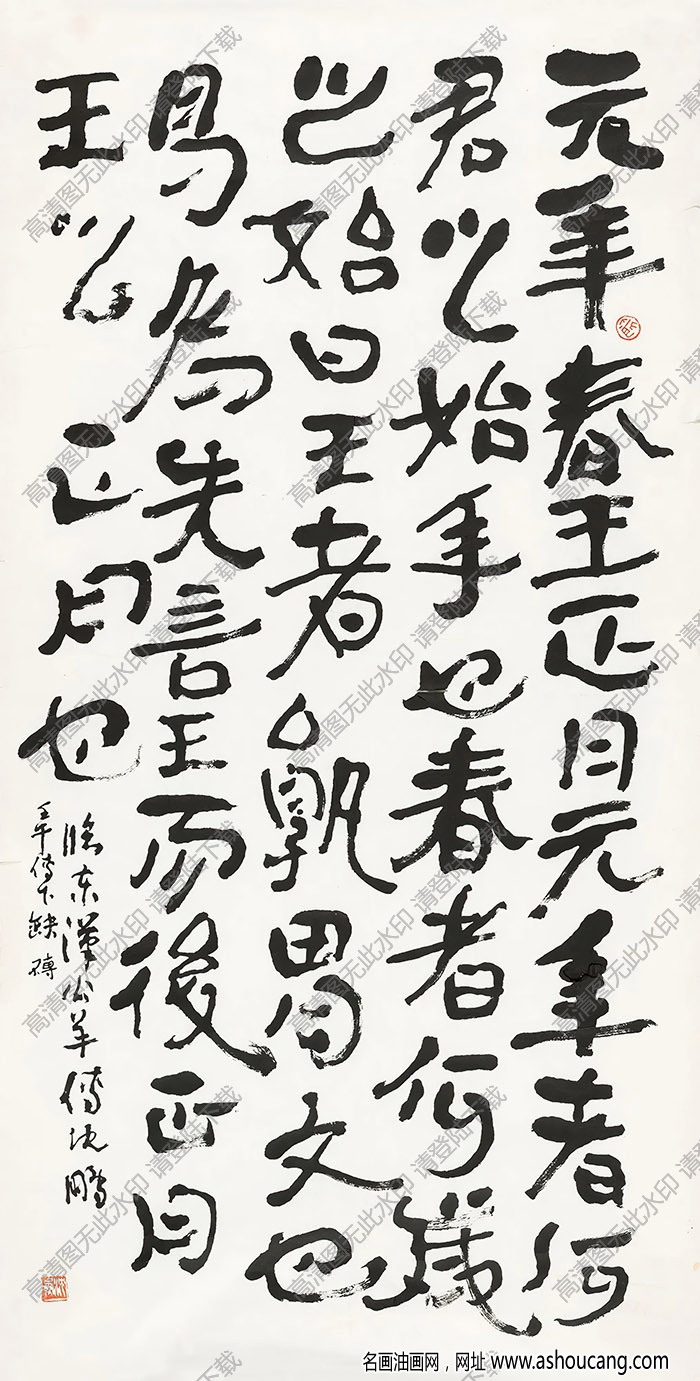 元年春王正月元年者何
君之始年也春者何歲
之始曰王者孰胃文也
曷為先言王而後正月
王以正月也
臨東漢公羊傳沈鵬
傳下缺磚
高清图无此水印 请登陆下载
名画油画网，网址 www.ashoucang.com